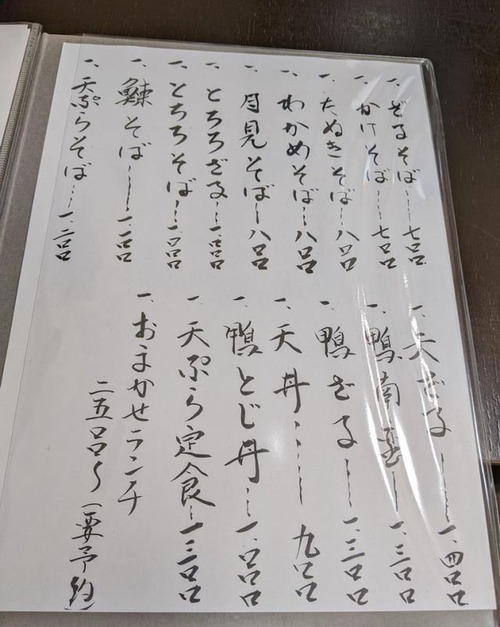 一、ざるそば 七〇〇
一、かけそば 七〇〇
一、たぬきそば 八〇〇
一、わかめそば 八〇〇
一、月見そば 八〇〇
一、とろろざる 一〇〇〇
一、とろろそば 一〇〇〇
一、鰊そば 一一〇〇
一、天ぷらそば 一、二〇〇
一、天ざる 一、四〇〇
一、鴨南蛮 一、三〇〇
一、鴨ざる 一、三〇〇
一、天丼 九〇〇
一、鴨とじ丼 一、〇〇〇
一、天ぷら定食 一三〇〇
一、おまかせランチ
二五〇〇〜(要予約)